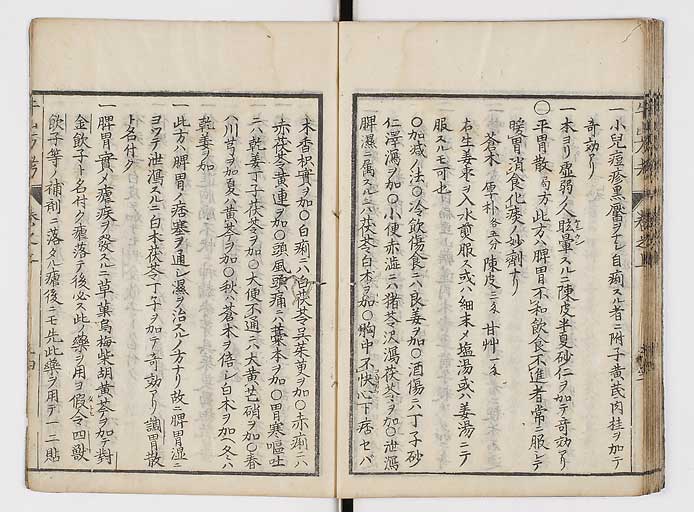 一小兒痘疹黒靨ヲナシ自痢スル者ニ附子黄芪肉桂ヲ加テ
奇効アリ
一本ヨリ虚弱ノ人眩暈スルニ陳皮半夏砂仁ヲ加テ奇効アリ
○平胃散 局方 此方ハ脾胃不和飲食不進者常ニ服シテ
暖胃消食化痰ノ妙剤ナリ
蒼朮 厚朴 各五分 陳皮 三分 甘艸 一分
右生姜棗ヲ入水煎服ス或ハ細末メ塩湯或ハ姜湯ニテ
服スルモ可也
○加減ノ法○冷飲傷食ニハ良姜ヲ加○酒傷ニハ丁子砂
仁澤瀉ヲ加○小便赤澁ニハ猪苓沢瀉茯苓ヲ加○泄瀉
脾濕ニ属スルニハ茯苓白朮ヲ加○胸中不快心下痞セバ
木香枳實ヲ加○白痢ニハ茯苓呉茱萸ヲ加○赤痢ニハ
赤茯苓黄連ヲ加○頭風頭痛ニハ藁本ヲ加○胃寒嘔吐
ニハ乾姜丁子茯苓ヲ加○大便不通ニハ大黄芒硝ヲ加○春
ハ川芎ヲ加夏ハ黄芩ヲ加○秋ハ蒼朮ヲ倍シ白朮ヲ加ヘ冬ハ
乾姜ヲ加
一此方ハ脾胃ノ痞塞ヲ通シ濕ヲ治スルノ方ナリ故ニ脾胃湿ニ
ヨツテ泄瀉スルニ白朮茯苓丁子ヲ加テ奇効アリ調胃散
ト名付ク
一脾胃實メ瘧疾ヲ發スルニ草菓烏梅柴胡黄芩ヲ加テ對
金飲子ト名付ク瘧落テ後必ス此ノ藥ヲ用ヨ假令四獸
飲子等ノ補剤ニ落タル瘧後ニモ先此藥ヲ用テ一二貼